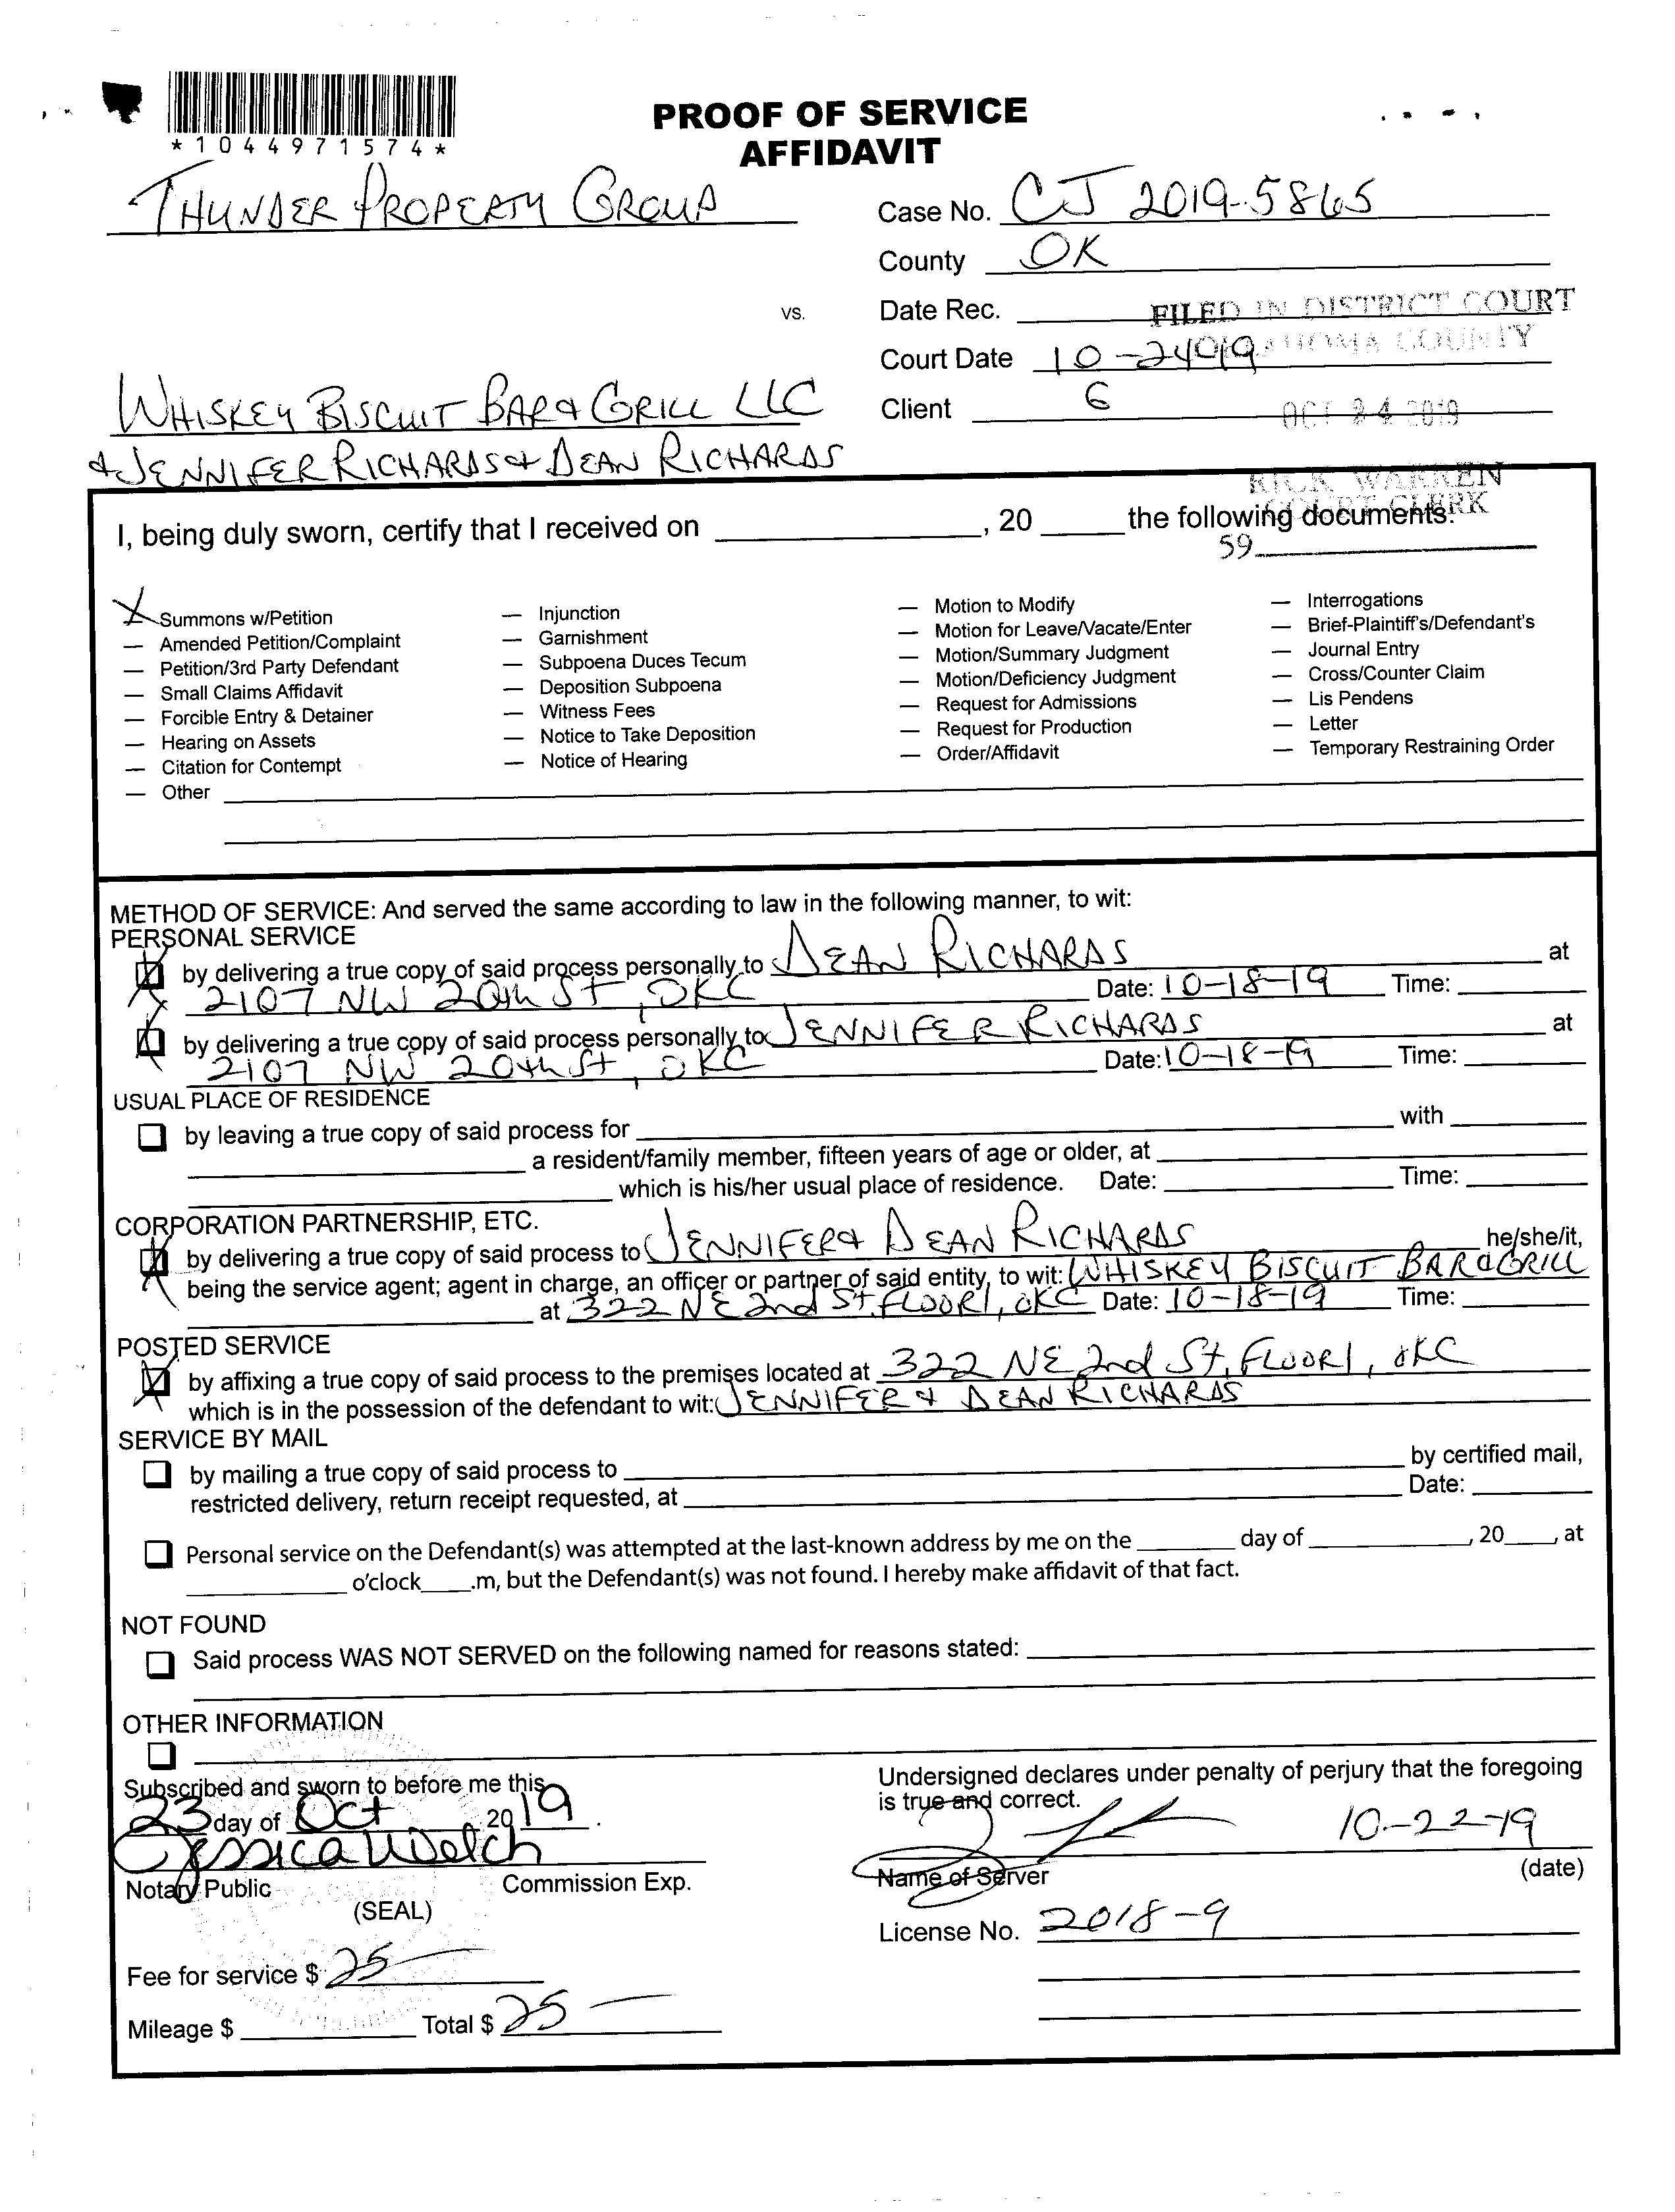 *1044971574*
PROOF OF SERVICE
AFFIDAVIT
THUNDER PROPERTY GROUP
Case No. CJ 2019-5865
County OK
vs.
Date Rec.
FILED IN DISTRICT COURT
OKLAHOMA COUNTY
Court Date 10-24-19
WHISKEY BISCUIT BAR & GRILL LLC
Client 6
OCT 24 2019
& JENNIFER RICHARDS & DEAN RICHARDS
RICK WARREN
COURT CLERK
I, being duly sworn, certify that I received on , 20 the following documents:
59
X Summons w/Petition
— Amended Petition/Complaint
— Petition/3rd Party Defendant
— Small Claims Affidavit
— Forcible Entry & Detainer
— Hearing on Assets
— Citation for Contempt
— Other
— Injunction
— Garnishment
— Subpoena Duces Tecum
— Deposition Subpoena
— Witness Fees
— Notice to Take Deposition
— Notice of Hearing
— Motion to Modify
— Motion for Leave/Vacate/Enter
— Motion/Summary Judgment
— Motion/Deficiency Judgment
— Request for Admissions
— Request for Production
— Order/Affidavit
— Interrogations
— Brief-Plaintiff's/Defendant's
— Journal Entry
— Cross/Counter Claim
— Lis Pendens
— Letter
— Temporary Restraining Order
METHOD OF SERVICE: And served the same according to law in the following manner, to wit:
PERSONAL SERVICE
by delivering a true copy of said process personally to DEAN RICHARDS at
2107 NW 20th St, OKC Date: 10-18-19 Time:
by delivering a true copy of said process personally to JENNIFER RICHARDS at
2107 NW 20th St, OKC Date: 10-18-19 Time:
USUAL PLACE OF RESIDENCE
by leaving a true copy of said process for with
a resident/family member, fifteen years of age or older, at
which is his/her usual place of residence. Date: Time:
CORPORATION PARTNERSHIP, ETC.
by delivering a true copy of said process to JENNIFER & DEAN RICHARDS he/she/it,
being the service agent; agent in charge, an officer or partner of said entity, to wit: WHISKEY BISCUIT BAR & GRILL
at 322 NE 2nd St, FLOOR 1, OKC Date: 10-18-19 Time:
POSTED SERVICE
by affixing a true copy of said process to the premises located at 322 NE 2nd St, FLOOR 1, OKC
which is in the possession of the defendant to wit: JENNIFER & DEAN RICHARDS
SERVICE BY MAIL
by mailing a true copy of said process to by certified mail,
restricted delivery, return receipt requested, at Date:
Personal service on the Defendant(s) was attempted at the last-known address by me on the day of , 20 , at
o'clock .m, but the Defendant(s) was not found. I hereby make affidavit of that fact.
NOT FOUND
Said process WAS NOT SERVED on the following named for reasons stated:
OTHER INFORMATION
Subscribed and sworn to before me this
23 day of Oct 2019.
Jessica Welch
Notary Public Commission Exp.
(SEAL)
Fee for service $ 25
Mileage $ Total $ 25
Undersigned declares under penalty of perjury that the foregoing
is true and correct.
10-22-19
Name of Server (date)
License No. 2018-9